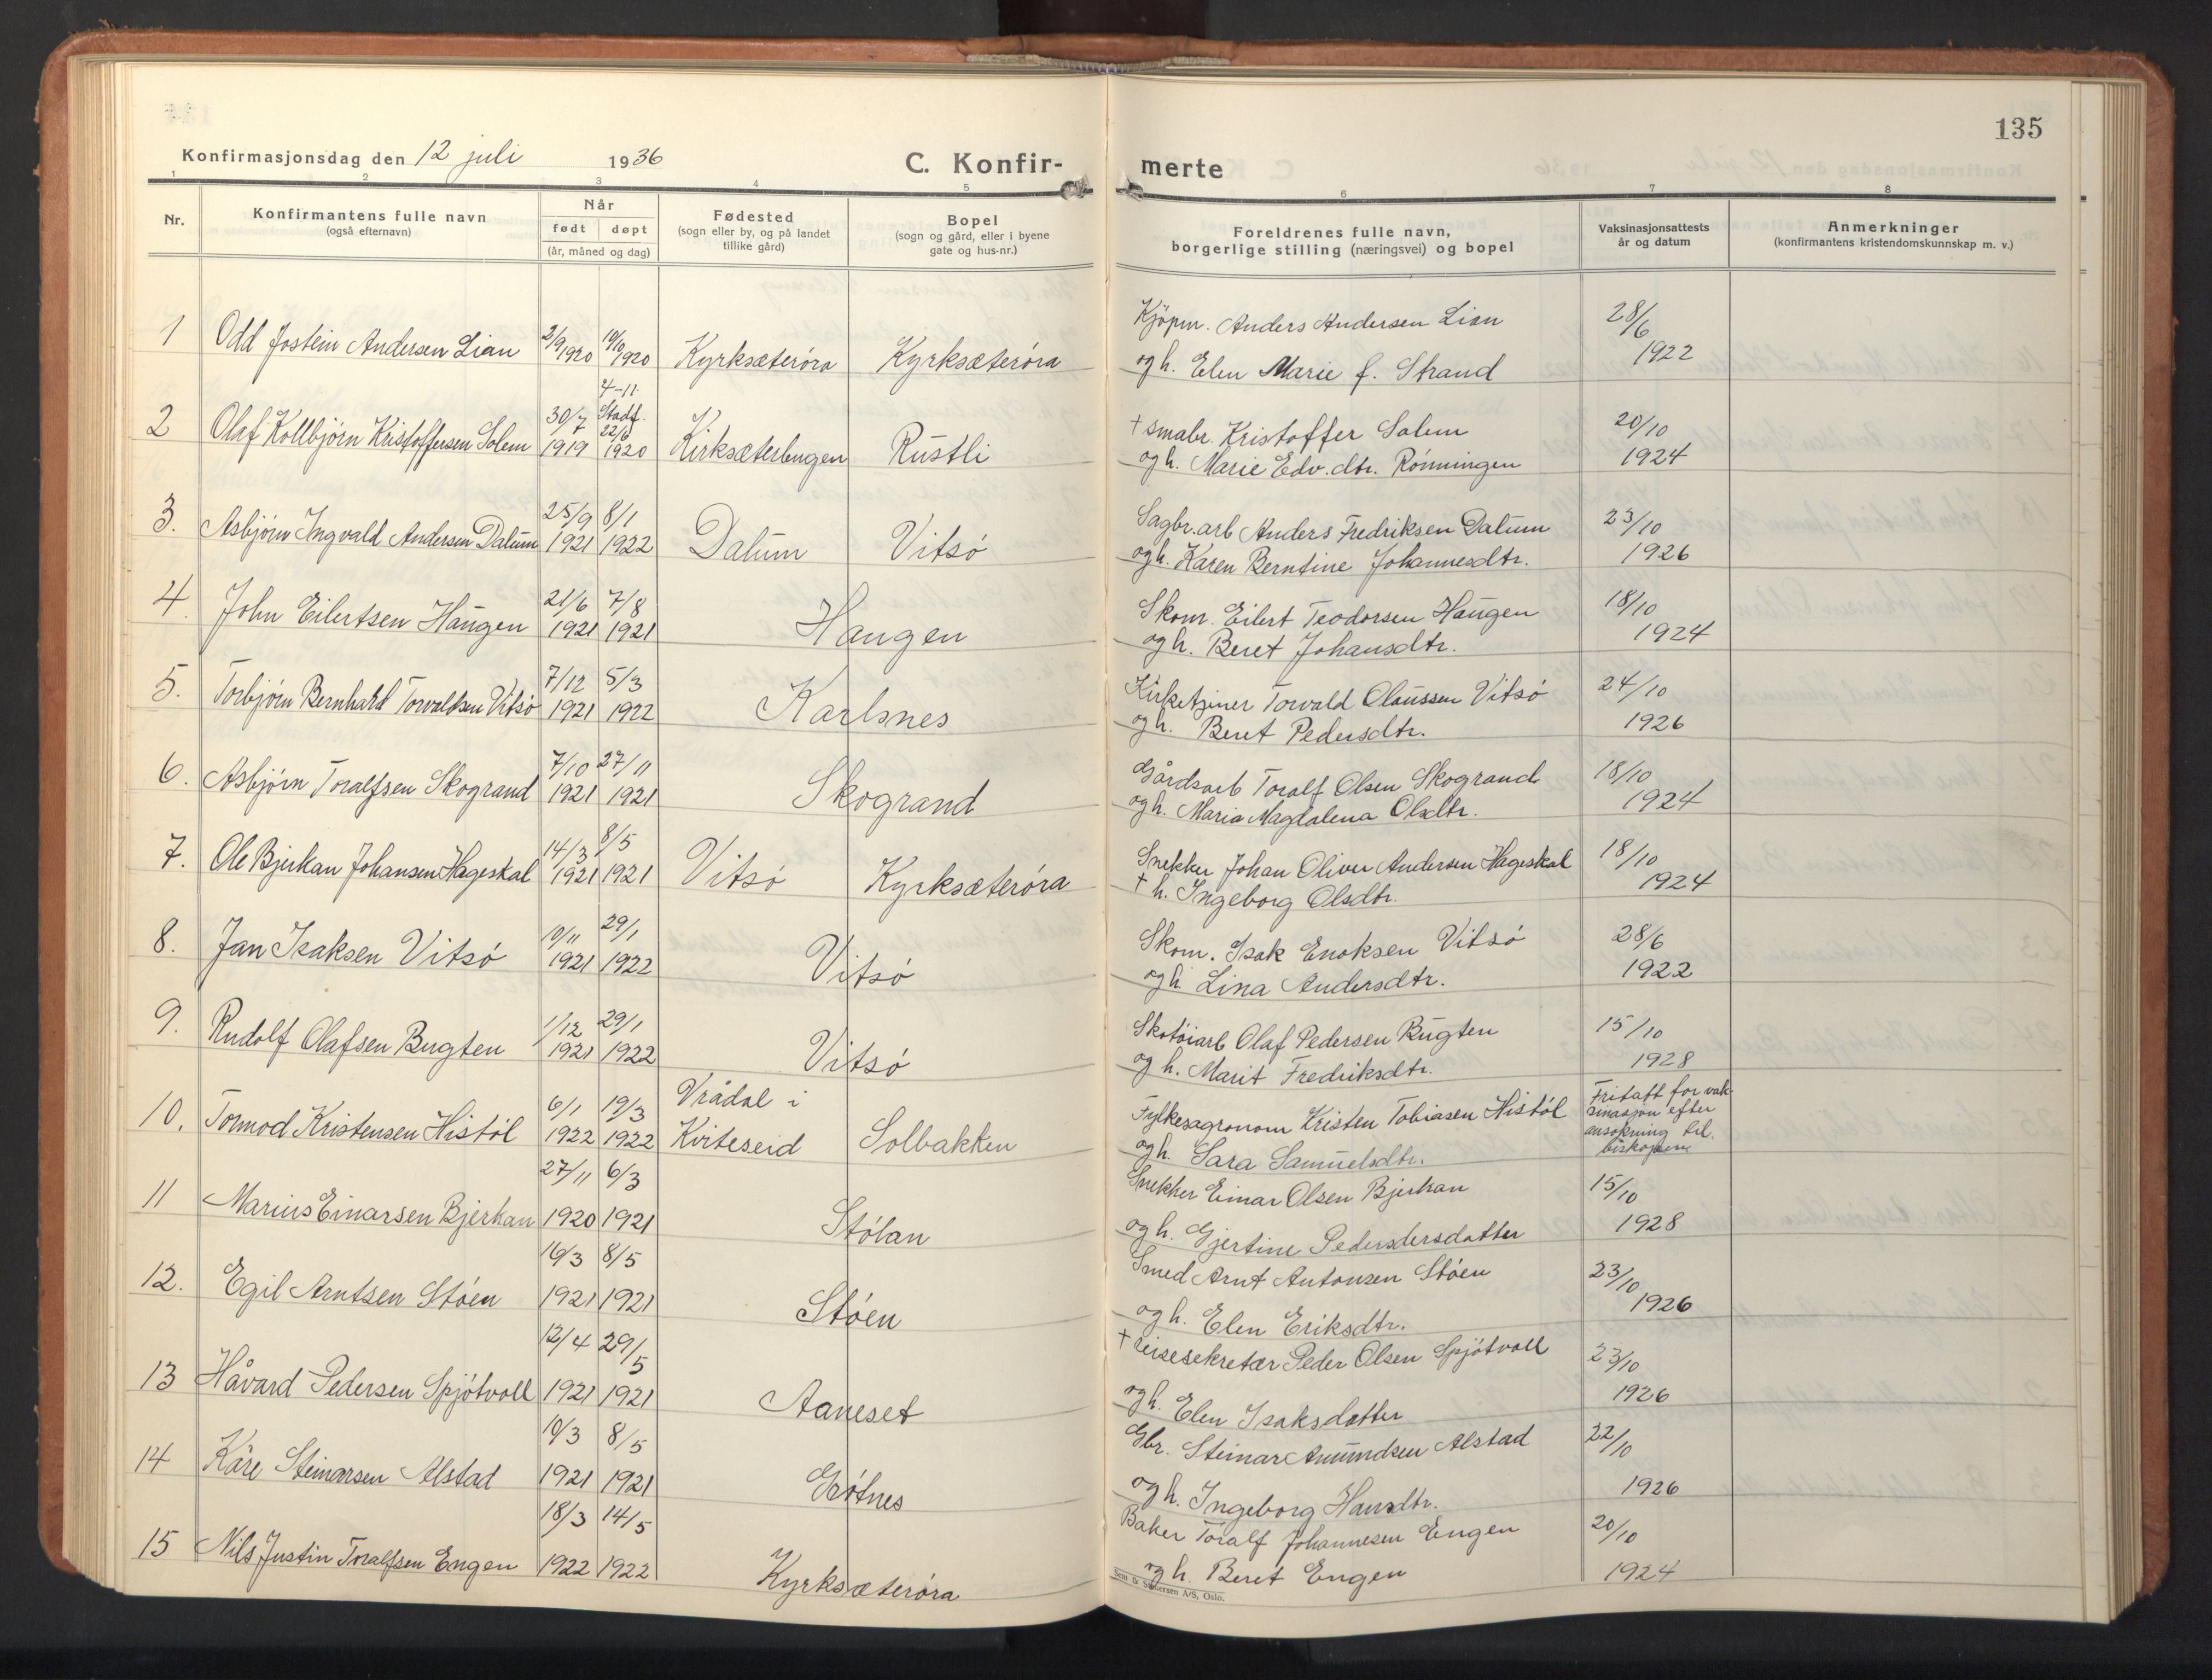 135
Konfirmasjonsdag den 12 juli 1936
C. Konfir-
merte
1 2 3 4 5 6 7 8
Nr.
Konfirmantens fulle navn
(også efternavn)
Når
født døpt
(år, måned og dag)
Fødested
(sogn eller by, og på landet
tillike gård)
Bopel
(sogn og gård, eller i byene
gate og hus-nr.)
Foreldrenes fulle navn,
borgerlige stilling (næringsvei) og bopel
Vaksinasjonsattests
år og datum
Anmerkninger
(konfirmantens kristendomskunnskap m. v.)
1 Odd Jostein Andersen Lian 2/9 1920 10/10 1920 Kyrksæteróra Kyrksæteróra
Kjöpm. Anders Andersen Lian 28/6
og h. Elen Marie f. Strand 1922
4-11.
Stadf.
2 Olaf Kollbjórn Kristoffersen Solem 30/7 1919 22/6 1920 Kirksæterbugen Rustli
† smabr. Kristoffer Solem 20/10
og h. Marie Edv. dtr. Rónningen 1924
3. Asbjórn Ingvald Andersen Dalum 25/9 1921 8/1 1922 Dalum Vitsó
Sagbr. arb Anders Fredriksen Dalum 23/10
og h. Karen Berntine Johannesdtr. 1926
4. John Eilertsen Haugen 21/6 1921 7/8 1921 Haugen
Skom. Eilert Teodorsen Haugen 18/10
og h. Beret Johansdtr. 1924
5. Torbjórn Bernhard Torvaldsen Vitsó 7/12 1921 5/3 1922 Karlsnes
Kirketjener Torvald Olaussen Vitsó 24/10
og h. Beret Pedersdtr. 1926
6. Asbjórn Toralfsen Skogrand 7/10 1921 27/11 1921 Skogrand
Gårdsarb Toralf Olsen Skogrand 18/10
og h. Maria Magdalena Olsdtr. 1924
7. Ole Bjerkan Johansen Hageskal 14/3 1921 8/5 1921 Vitsó Kyrksæteróra
Snekker Johan Oliver Andersen Hageskal 18/10
† h. Ingeborg Olsdtr. 1924
8. Jan Isaksen Vitsó 10/11 1921 29/1 1922 Vitsó
Skom. Isak Enoksen Vitsó 28/6
og h. Lina Andersdtr. 1922
9. Rudolf Olafsen Bugten 1/12 1921 29/1 1922 Vitsó
Skotóiarb Olaf Pedersen Bugten 15/10
og h. Marit Fredriksdtr. 1928
10. Tormod Kristensen Histól 6/1 1922 19/3 1922 Vrådal i Kviteseid Solbakken
Fylkesagronom Kristen Tobiasen Histól
og h. Sara Samuelsdtr.
Fritatt for vak-
sinasjon efter
ansokning til
biskopen
11 Marius Einarsen Bjerkan 27/11 1920 6/3 1921 Stólan
Snekker Einar Olsen Bjerkan 15/10
og h. Gjertine Pedersdersdatter 1928
12. Egil Arntsen Stóen 16/3 1921 8/5 1921 Stóen
Smed Arnt Antonsen Stóen 23/10
og h. Elen Eriksdtr. 1926
13 Håvard Pedersen Spjótvoll 12/4 1921 29/5 1921 Aaneset
† reisesekretær Peder Olsen Spjótvoll 23/10
og h. Elen Isaksdatter 1926
14 Kåre Steinarsen Alstad 10/3 1921 8/5 1921 Grótnes
Gbr. Steinar Amundsen Alstad 22/10
og h. Ingeborg Hansdtr. 1926
15 Nils Justin Toralfsen Engen 18/3 1922 14/5 1922 Kyrksæteróra
Baker Toralf Johannesen Engen 20/10
og h. Beret Engen 1924
Sem & Stenersen A/S, Oslo.